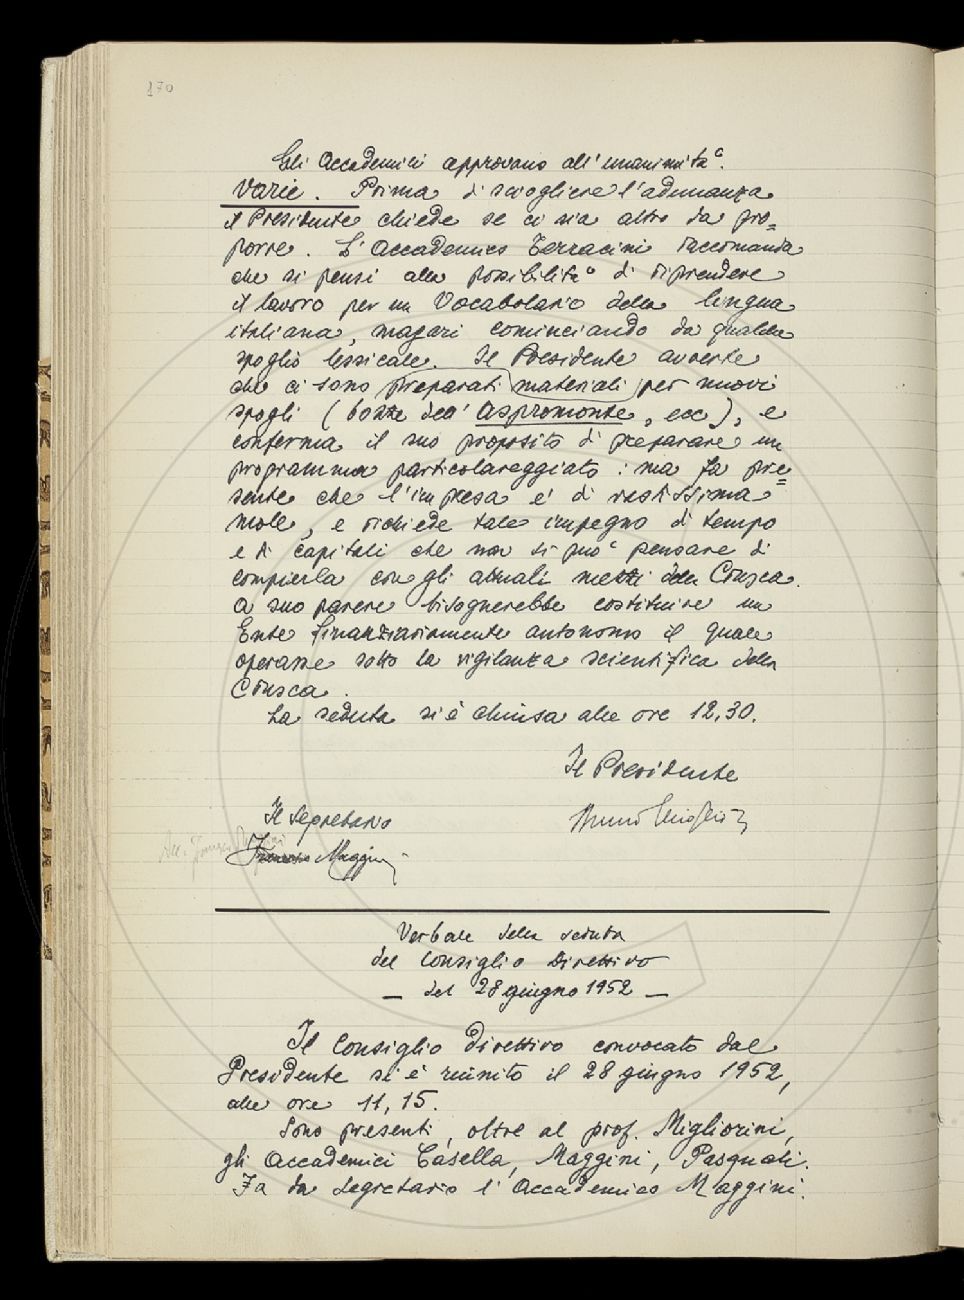 170
Gli Accademici approvano all'unanimità.
Varie. Prima di sciogliere l'adunanza
il Presidente chiede se ci sia altro da pro=
porre. L'Accademico Terracini raccomanda
che si pensi alla possibilità di riprendere
il lavoro per un Vocabolario della lingua
italiana, magari cominciando da qualche
spoglio lessicale. Il Presidente avverte
che ci sono preparati materiali per nuovi
spogli (bozze dell'Aspromonte, ecc), e
conferma il suo proposito di preparare un
programma particolareggiato: ma fa pre=
sente che l'impresa è di vastissima
mole, e richiede tale impegno di tempo
e di capitali che non si può pensare di
compierla con gli attuali mezzi della Crusca.
A suo parere bisognerebbe costituire un
Ente finanziariamente autonomo il quale
operasse sotto la vigilanza scientifica della
Crusca.
La seduta si è chiusa alle ore 12,30.
Il Presidente
Il Segretario
Bruno Migliorini
Francesco Maggini
Verbale della seduta
del Consiglio Direttivo
— del 28 giugno 1952 —
Il Consiglio Direttivo convocato dal
Presidente si è riunito il 28 giugno 1952,
alle ore 11,15.
Sono presenti, oltre al prof. Migliorini,
gli Accademici Casella, Maggini, Pasquali.
Fa da segretario l'Accademico Maggini.